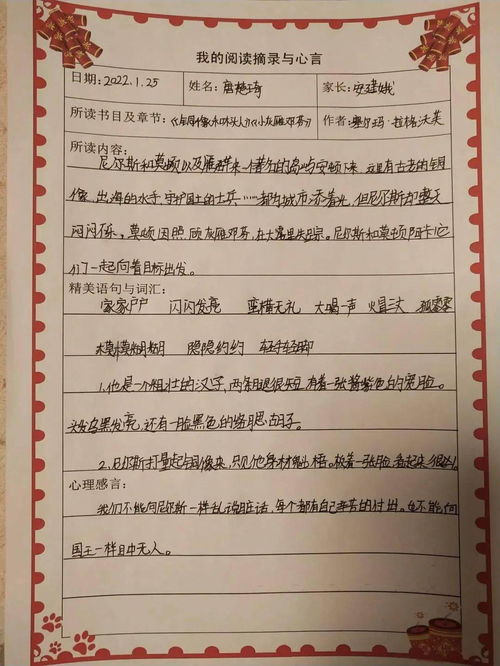 我的阅读摘录与心言
日期:2022.1.25 姓名: 家长:安建娥
所读书目及章节:《铜像和木头人》《小灰雁邓芬》 作者:塞尔玛·拉格洛芙
所读内容:
尼尔斯和莫顿以及雁群来一借宿的岛屿安顿下来,这里有古老的铜
像,出海的水手,守护国土的士兵,……都为城市添着光,但尼尔斯却整天
闷闷不乐,莫顿因照顾灰雁邓芬,在大雾里失踪。尼尔斯和莫顿阿卡它
们一起向着目标出发。
精美语句与词汇:
家家户户 闪闪发亮 蛮横无礼 大喝一声 火冒三丈 孤零零
模模糊糊 隐隐约约 轻手轻脚
1.他是一个粗壮的汉子,两条腿很短,有着一张酱紫色的宽脸。
头发乌黑发亮,还有一脸黑色的络腮胡子。
2.尼尔斯打量起铜像来,只见他身材魁梧。板着一张脸,看起来很凶。
心理感言:
我们不能向尼尔斯一样乱说脏话,每个都有自己辛苦的付出。也不能向
国王一样目中无人。